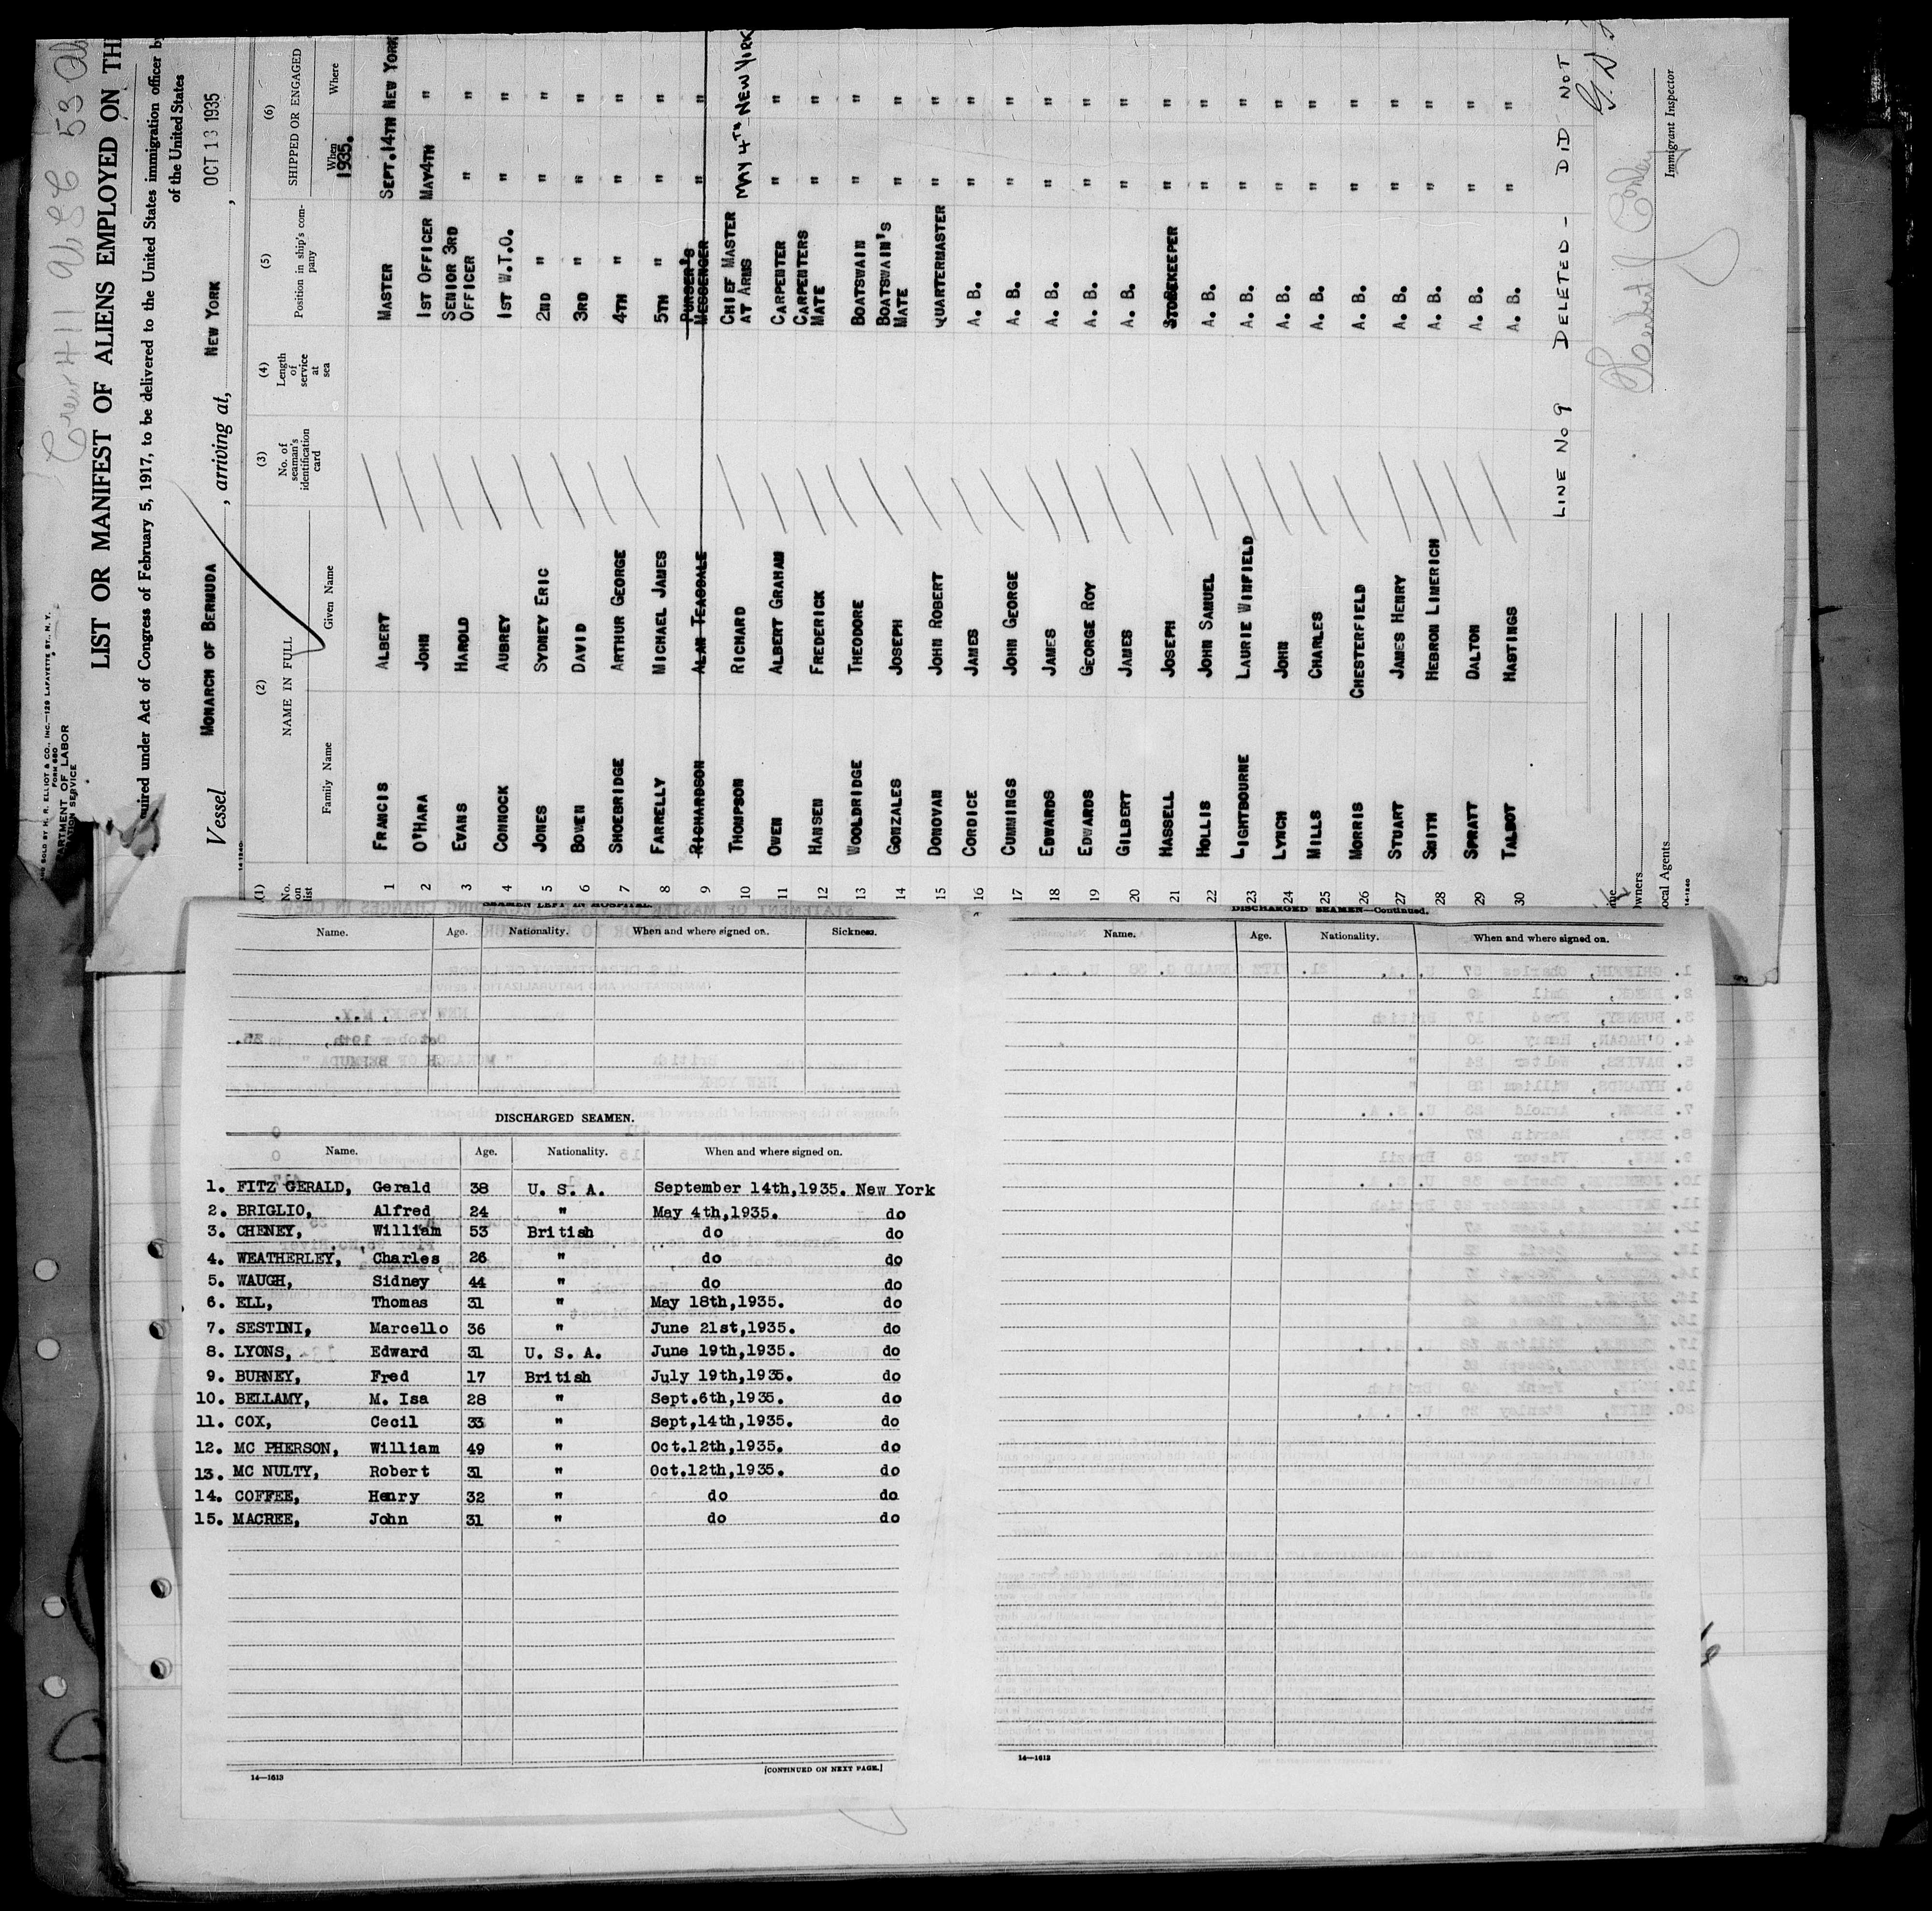 Crew 411 53
SOLD BY H. R. ELLIOT & CO., INC.—129 LAFAYETTE ST., N. Y.
FORM 680
LIST OR MANIFEST OF ALIENS EMPLOYED ON TH
under Act of Congress of February 5, 1917, to be delivered to the United States immigration officer b
of the United States
Vessel MONARCH OF BERMUDA, arriving at, NEW YORK, OCT 13 1935
(1) (2) (3) (4) (5) (6)
No. on list NAME IN FULL No. of seaman's identification card Length of service at sea Position in ship's company SHIPPED OR ENGAGED
Family Name Given Name When Where
1935.
1 FRANCIS ALBERT MASTER SEPT.14TH NEW YORK
2 O'HARA JOHN 1ST OFFICER MAY4TH "
3 EVANS HAROLD SENIOR 3RD OFFICER " "
4 CONNOCK AUBREY 1ST W.T.O. " "
5 JONES SYDNEY ERIC 2ND " " "
6 BOWEN DAVID 3RD " " "
7 SHOEBRIDGE ARTHUR GEORGE 4TH " " "
8 FARRELLY MICHAEL JAMES 5TH " " "
9 RICHARDSON ALAN TEASDALE PURSER'S MESSENGER " "
10 THOMPSON RICHARD CHIEF MASTER AT ARMS MAY 4TH NEW YORK
11 OWEN ALBERT GRAHAM CARPENTER " "
12 HANSEN FREDERICK CARPENTERS MATE " "
13 WOOLDRIDGE THEODORE BOATSWAIN " "
14 GONZALES JOSEPH BOATSWAIN'S MATE " "
15 DONOVAN JOHN ROBERT QUARTERMASTER " "
16 CORDICE JAMES A. B. " "
17 CUMMINGS JOHN GEORGE A. B. " "
18 EDWARDS JAMES A. B. " "
19 EDWARDS GEORGE ROY A. B. " "
20 GILBERT JAMES A. B. " "
21 HASSELL JOSEPH STOREKEEPER " "
22 HOLLIS JOHN SAMUEL A. B. " "
23 LIGHTBOURNE LAURIE WINFIELD A. B. " "
24 LYNCH JOHN A. B. " "
25 MILLS CHARLES A. B. " "
26 MORRIS CHESTERFIELD A. B. " "
27 STUART JAMES HENRY A. B. " "
28 SMITH HEBRON LIMERICH A. B. " "
29 SPRATT DALTON A. B. " "
30 TALBOT HASTINGS A. B. " "
LINE NO 9 DELETED - DID NOT
Immigrant Inspector
SEAMEN LEFT IN HOSPITAL.
Name. Age. Nationality. When and where signed on. Sickness.
DISCHARGED SEAMEN.
Name. Age. Nationality. When and where signed on.
1. FITZ GERALD, Gerald 38 U. S. A. September 14th,1935. New York
2. BRIGLIO, Alfred 24 " May 4th,1935. do
3. CHENEY, William 53 British do do
4. WEATHERLEY, Charles 26 " do do
5. WAUGH, Sidney 44 " do do
6. ELL, Thomas 31 " May 18th,1935. do
7. SESTINI, Marcello 36 " June 21st,1935. do
8. LYONS, Edward 31 U. S. A. June 19th,1935. do
9. BURNEY, Fred 17 British July 19th,1935. do
10. BELLAMY, M. Isa 28 " Sept.6th,1935. do
11. COX, Cecil 33 " Sept,14th,1935. do
12. MC PHERSON, William 49 " Oct.12th,1935. do
13. MC NULTY, Robert 31 " Oct.12th,1935. do
14. COFFEE, Henry 32 " do do
15. MACREE, John 31 " do do
14—1613 [CONTINUED ON NEXT PAGE.]
DISCHARGED SEAMEN—Continued.
Name. Age. Nationality. When and where signed on.
14—1613